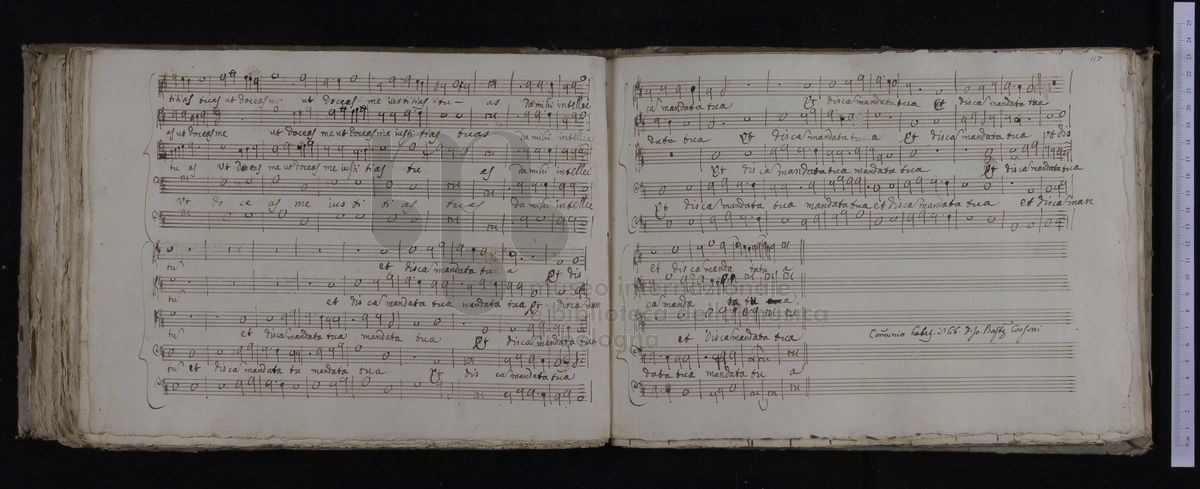 titias tuas ut doceas me ut doceas me iustitias tu - as Da mihi intellec
as ut doceas me ut doceas me ut doceas me iusti tias tuas da mihi intellec
tu as ut doceas me ut doceas me iusti tias tu as da mihi intellec
Ut do ce as me ius ti ti as tuas da mihi intellec
tū et discā mandata tu a Et dis
tū et dis cā mandata tua mandata tua Et discā man
tū et discā mandata tua mandata tua Et discā mandata tua
tū et dis cā mandata tu mandata tua Et dis cā mandata tua
117
cā mandata tua Et discā mandata tua Et discā mandata tua
data tua Et discā mandata tu a Et discā mandata tua Et dis
Et dis cā mandata tua mandata tua Et discā mandata tua
Et discā mandata tua mandata tua et discā mandata tua et discā man
et dis cā manda ta tu a
cā manda ta tu a
et discā mandata tua
data tua mandata tu a
museo internazionale
e biblioteca della musica
di bologna